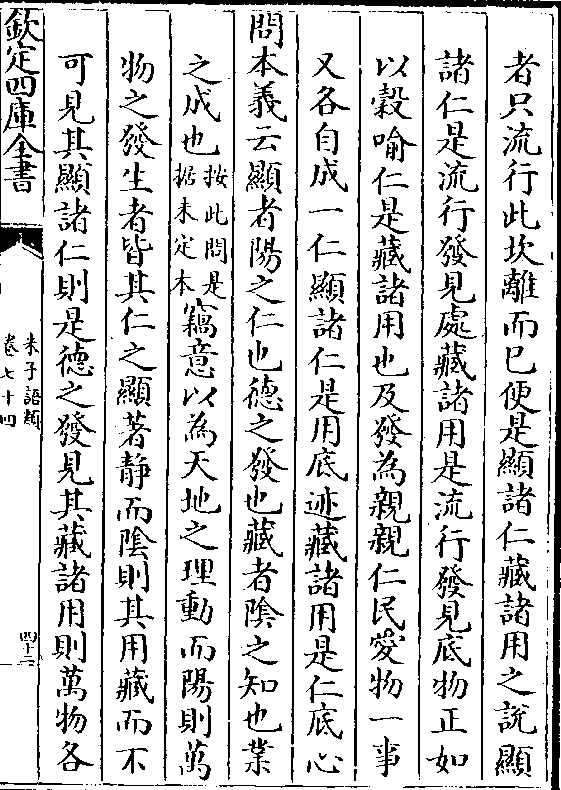 者只流行此坎離而已便是顯諸仁藏諸用之說顯
諸仁是流行發見處藏諸用是流行發見底物正如
以穀喻仁是藏諸用也及發為親親仁民愛物一事
又各自成一仁顯諸仁是用底迹藏諸用是仁底心
問本義云顯者陽之仁也德之發也藏者陰之知也業
之成也按此問是据未定本竊意以為天地之理動而陽則萬
物之發生者皆其仁之顯著静而陰則其用藏而不
可見其顯諸仁則是德之發見其藏諸用則萬物各
欽定四庫全書
朱子語類
卷七十四
四十三